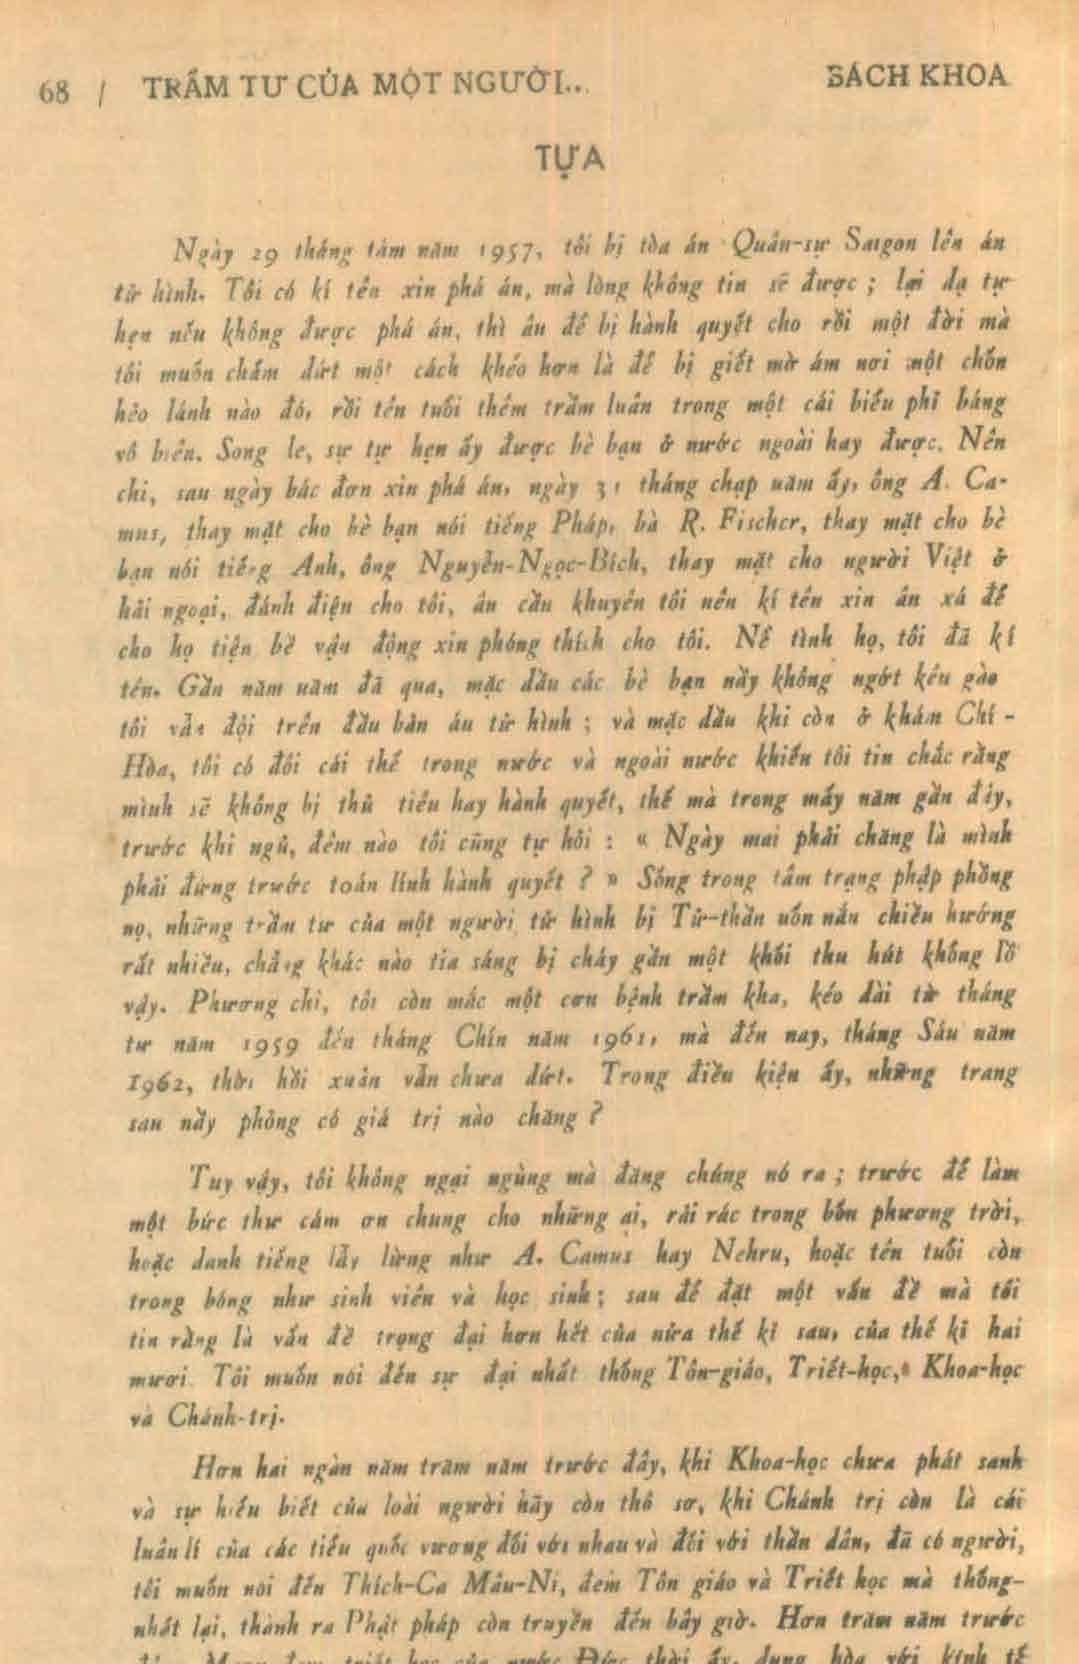 68 / TRẦM TƯ CỦA MỘT NGƯỜI...
BÁCH KHOA
TỰA
Ngày 29 tháng tám năm 1957, tôi bị tòa án Quân-sự Saigon lên án
tử hình. Tôi có kí tên xin phá án, mà lòng không tin sẽ được ; lại dạ tự
hẹn nếu không được phá án, thì âu để bị hành quyết cho rồi một đời mà
tôi muốn chấm dứt một cách khéo hơn là để bị giết mờ ám nơi một chốn
hẻo lánh nào đó, rồi tên tuổi thêm trầm luân trong một cái biển phỉ báng
vô biên. Song le, sự tự hẹn ấy được bè bạn ở nước ngoài hay được. Nên
chi, sau ngày bác đơn xin phá án, ngày 31 tháng chạp năm ấy, ông A. Ca-
mus, thay mặt cho bè bạn nói tiếng Pháp, bà R. Fischer, thay mặt cho bè
bạn nói tiếng Anh, ông Nguyễn-Ngọc-Bích, thay mặt cho người Việt ở
hải ngoại, đánh điện cho tôi, ân cần khuyên tôi nên kí tên xin ân xá để
cho họ tiện bề vận động xin phóng thích cho tôi. Nể tình họ, tôi đã kí
tên. Gần năm năm đã qua, mặc dầu các bè bạn nầy không ngớt kêu gào
tôi vẫn đội trên đầu bản án tử hình ; và mặc dầu khi còn ở khám Chí-
Hòa, tôi có đôi cái thế trong nước và ngoài nước khiến tôi tin chắc rằng
mình sẽ không bị thủ tiêu hay hành quyết, thế mà trong mấy năm gần đây,
trước khi ngủ, đêm nào tôi cũng tự hỏi : « Ngày mai phải chăng là mình
phải đứng trước toán lính hành quyết ? » Sống trong tâm trạng phập phồng
nọ, những trầm tư của một người tử hình bị Tử-thần uốn nắn chiều hướng
rất nhiều, chẳng khác nào tia sáng bị cháy gần một khối thu hút khổng lồ
vậy. Phương chi, tôi còn mắc một cơn bệnh trầm kha, kéo dài từ tháng
tư năm 1959 đến tháng Chín năm 1961, mà đến nay, tháng Sáu năm
1962, thời hồi xuân vẫn chưa dứt. Trong điều kiện ấy, những trang
sau nầy phỏng có giá trị nào chăng ?
Tuy vậy, tôi không ngại ngùng mà đăng chúng nó ra ; trước để làm
một bức thư cám ơn chung cho những ai, rải rác trong bốn phương trời,
hoặc danh tiếng lẫy lừng như A. Camus hay Nehru, hoặc tên tuổi còn
trong bóng như sinh viên và học sinh ; sau để đặt một vấn đề mà tôi
tin rằng là vấn đề trọng đại hơn hết của nửa thế kỉ sau, của thế kỉ hai
mươi. Tôi muốn nói đến sự đại nhất thống Tôn-giáo, Triết-học, Khoa-học
và Chánh-trị.
Hơn hai ngàn năm trăm năm trước đây, khi Khoa-học chưa phát sanh
và sự hiểu biết của loài người hãy còn thô sơ, khi Chánh trị còn là cái
luân lí của các tiểu quốc vương đối với nhau và đối với thần dân, đã có người,
tôi muốn nói đến Thích-Ca Mâu-Ni, đem Tôn giáo và Triết học mà thống-
nhất lại, thành ra Phật pháp còn truyền đến bây giờ. Hơn trăm năm trước
triết học của nước Đức thời ấy, dung hòa với kinh tế